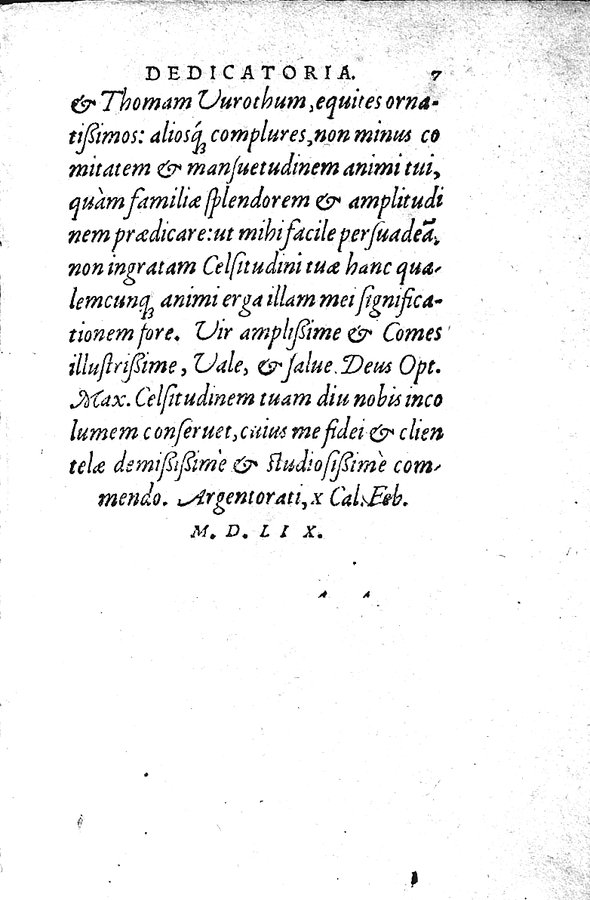 DEDICATORIA. 7
& Thomam Vurothum, equites orna-
tißimos: aliosq́ꝫ complures, non minus co
mitatem & manſuetudinem animi tui,
quàm familiæ ſplendorem & amplitudi
nem prædicare: ut mihi facile perſuadeā,
non ingratam Celſitudini tuæ hanc qua-
lemcunqꝫ animi erga illam mei ſignifica-
tionem fore. Vir amplißime & Comes
illuſtrißime, Vale, & ſalue. Deus Opt.
Max. Celſitudinem tuam diu nobis inco
lumem conſeruet, cuius me fidei & clien
telæ demißißimè & ſtudioſißimè com-
mendo. Argentorati, x Cal. Feb.
M. D. L I X.